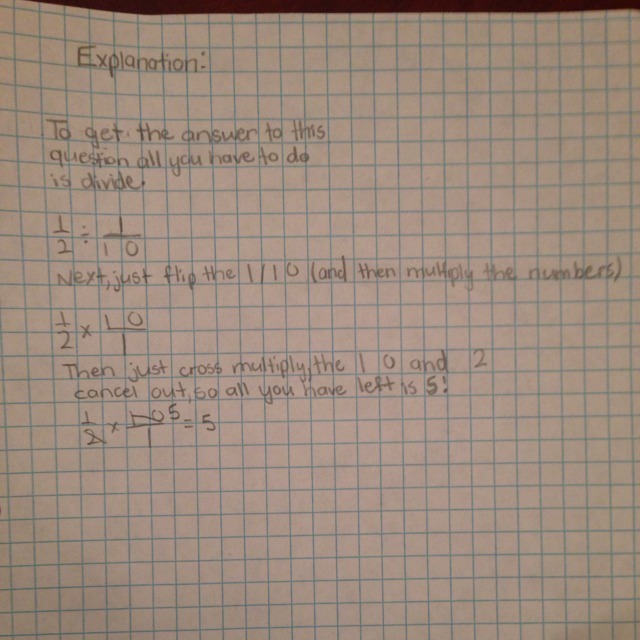 Explanation:
To get the answer to this
question all you have to do
is divide.
1/2 ÷ 1/10
Next, just flip the 1/10 (and then multiply the numbers)
1/2 x 10/1
Then just cross multiply, the 10 and 2
cancel out, so all you have left is 5!
1/2 x 10 5/1 = 5